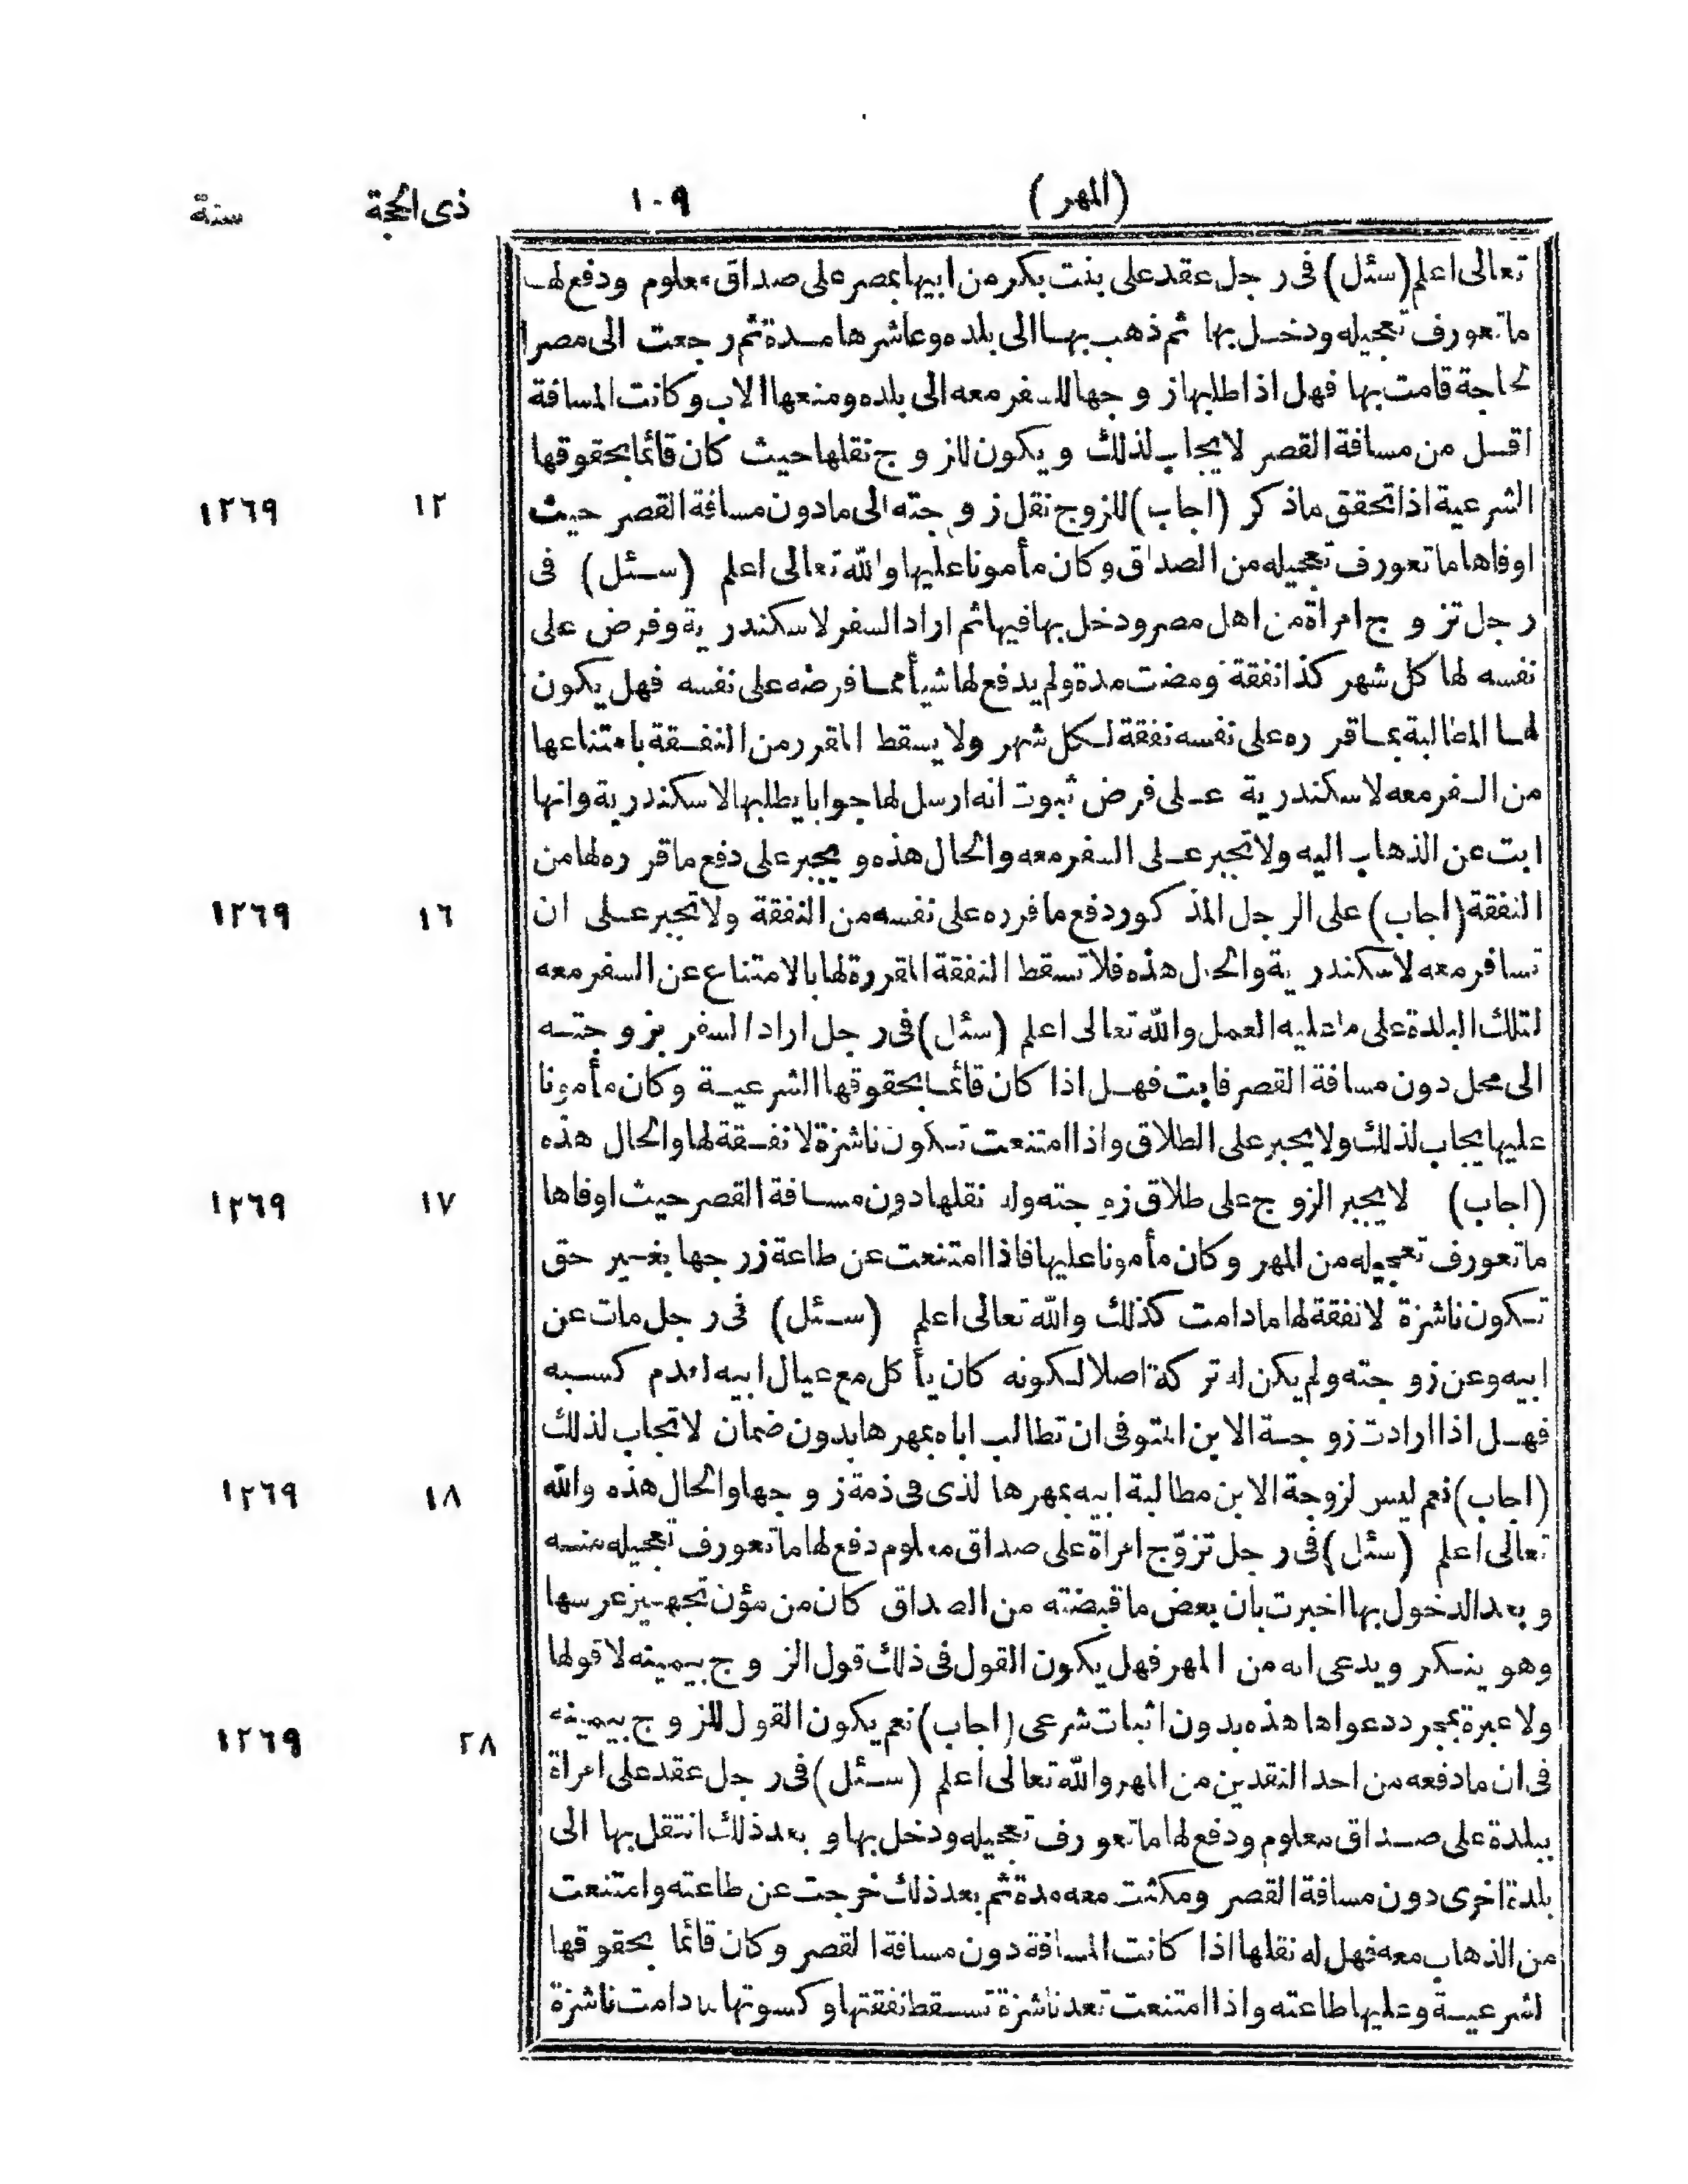 (المهر) ١٠٩ ذى الحجة سنة
تعالى اعلم (سئل) فى رجل عقد على بنت بكر من ابيها بمصر على صداق معلوم ودفع لها
ما تعورف تعجيله ودخل بها ثم ذهب بها الى بلده وعاشرها مدة ثم رجعت الى مصر
لحاجة قامت بها فهل اذا طلبها زوجها للسفر معه الى بلده ومنعها الاب وكانت المسافة
اقل من مسافة القصر لا يجاب لذلك ويكون للزوج نقلها حيث كان قائما بحقوقها
الشرعية اذا تحقق ماذكر (اجاب) للزوج نقل زوجته الى مادون مسافة القصر حيث ١٢ ١٢٦٩
اوفاها ما تعورف تعجيله من الصداق وكان مأمونا عليها والله تعالى اعلم (سئل) فى
رجل تزوج امراة من اهل مصر ودخل بها فيها ثم اراد السفر لاسكندرية وفرض على
نفسه لها كل شهر كذا نفقة ومضت مدة ولم يدفع لها شيأ مما فرضه على نفسه فهل يكون
لها المطالبة بما قرره على نفسه نفقة لكل شهر ولا يسقط المقرر من النفقة بامتناعها
من السفر معه لاسكندرية على فرض ثبوت انه ارسل لها جوابا يطلبها لاسكندرية وانها
ابت عن الذهاب اليه ولا تجبر على السفر معه والحال هذه ويجبر على دفع ما قرره لها من
النفقة (اجاب) على الرجل المذكور دفع ما قرره على نفسه من النفقة ولا تجبر على ان ١٦ ١٢٦٩
تسافر معه لاسكندرية والحال هذه فلا تسقط النفقة المقررة لها بالامتناع عن السفر معه
لتلك البلدة على ما عليه العمل والله تعالى اعلم (سئل) فى رجل اراد السفر بزوجته
الى محل دون مسافة القصر فابت فهل اذا كان قائما بحقوقها الشرعية وكان مأمونا
عليها يجاب لذلك ولا يجبر على الطلاق واذا امتنعت تكون ناشزة لا نفقة لها والحال هذه
(اجاب) لا يجبر الزوج على طلاق زوجته وله نقلها دون مسافة القصر حيث اوفاها ١٧ ١٢٦٩
ما تعورف تعجيله من المهر وكان مأمونا عليها فاذا امتنعت عن طاعة زوجها بغير حق
تكون ناشزة لا نفقة لها ما دامت كذلك والله تعالى اعلم (سئل) فى رجل مات عن
ابيه وعن زوجته ولم يكن له تركة اصلا لكونه كان يأكل مع عيال ابيه لعدم كسبه
فهل اذا ارادت زوجة الابن المتوفى ان تطالب اباه بمهرها بدون ضمان لا تجاب لذلك
(اجاب) نعم ليس لزوجة الابن مطالبة ابيه بمهرها لذى فى ذمة زوجها والحال هذه والله ١٨ ١٢٦٩
تعالى اعلم (سئل) فى رجل تزوّج امراة على صداق معلوم دفع لها ما تعورف تعجيله منه
وبعد الدخول بها اخبرت بان بعض ما قبضته من الصداق كان من مؤن تجهيز عرسها
وهو ينكر ويدعى انه من المهر فهل يكون القول فى ذلك قول الزوج بيمينه لا قولها
ولا عبرة بمجرد دعواها هذه بدون اثبات شرعى (اجاب) نعم يكون القول للزوج بيمينه ٢٨ ١٢٦٩
فى ان ما دفعه من احد النقدين من المهر والله تعالى اعلم (سئل) فى رجل عقد على امراة
ببلدة على صداق معلوم ودفع لها ما تعورف تعجيله ودخل بها وبعد ذلك انتقل بها الى
بلدة اخرى دون مسافة القصر ومكثت معه مدة ثم بعد ذلك خرجت عن طاعته وامتنعت
من الذهاب معه فهل له نقلها اذا كانت المسافة دون مسافة القصر وكان قائما بحقوقها
الشرعية وعليها طاعته واذا امتنعت تعد ناشزة تسقط نفقتها وكسوتها ما دامت ناشزة